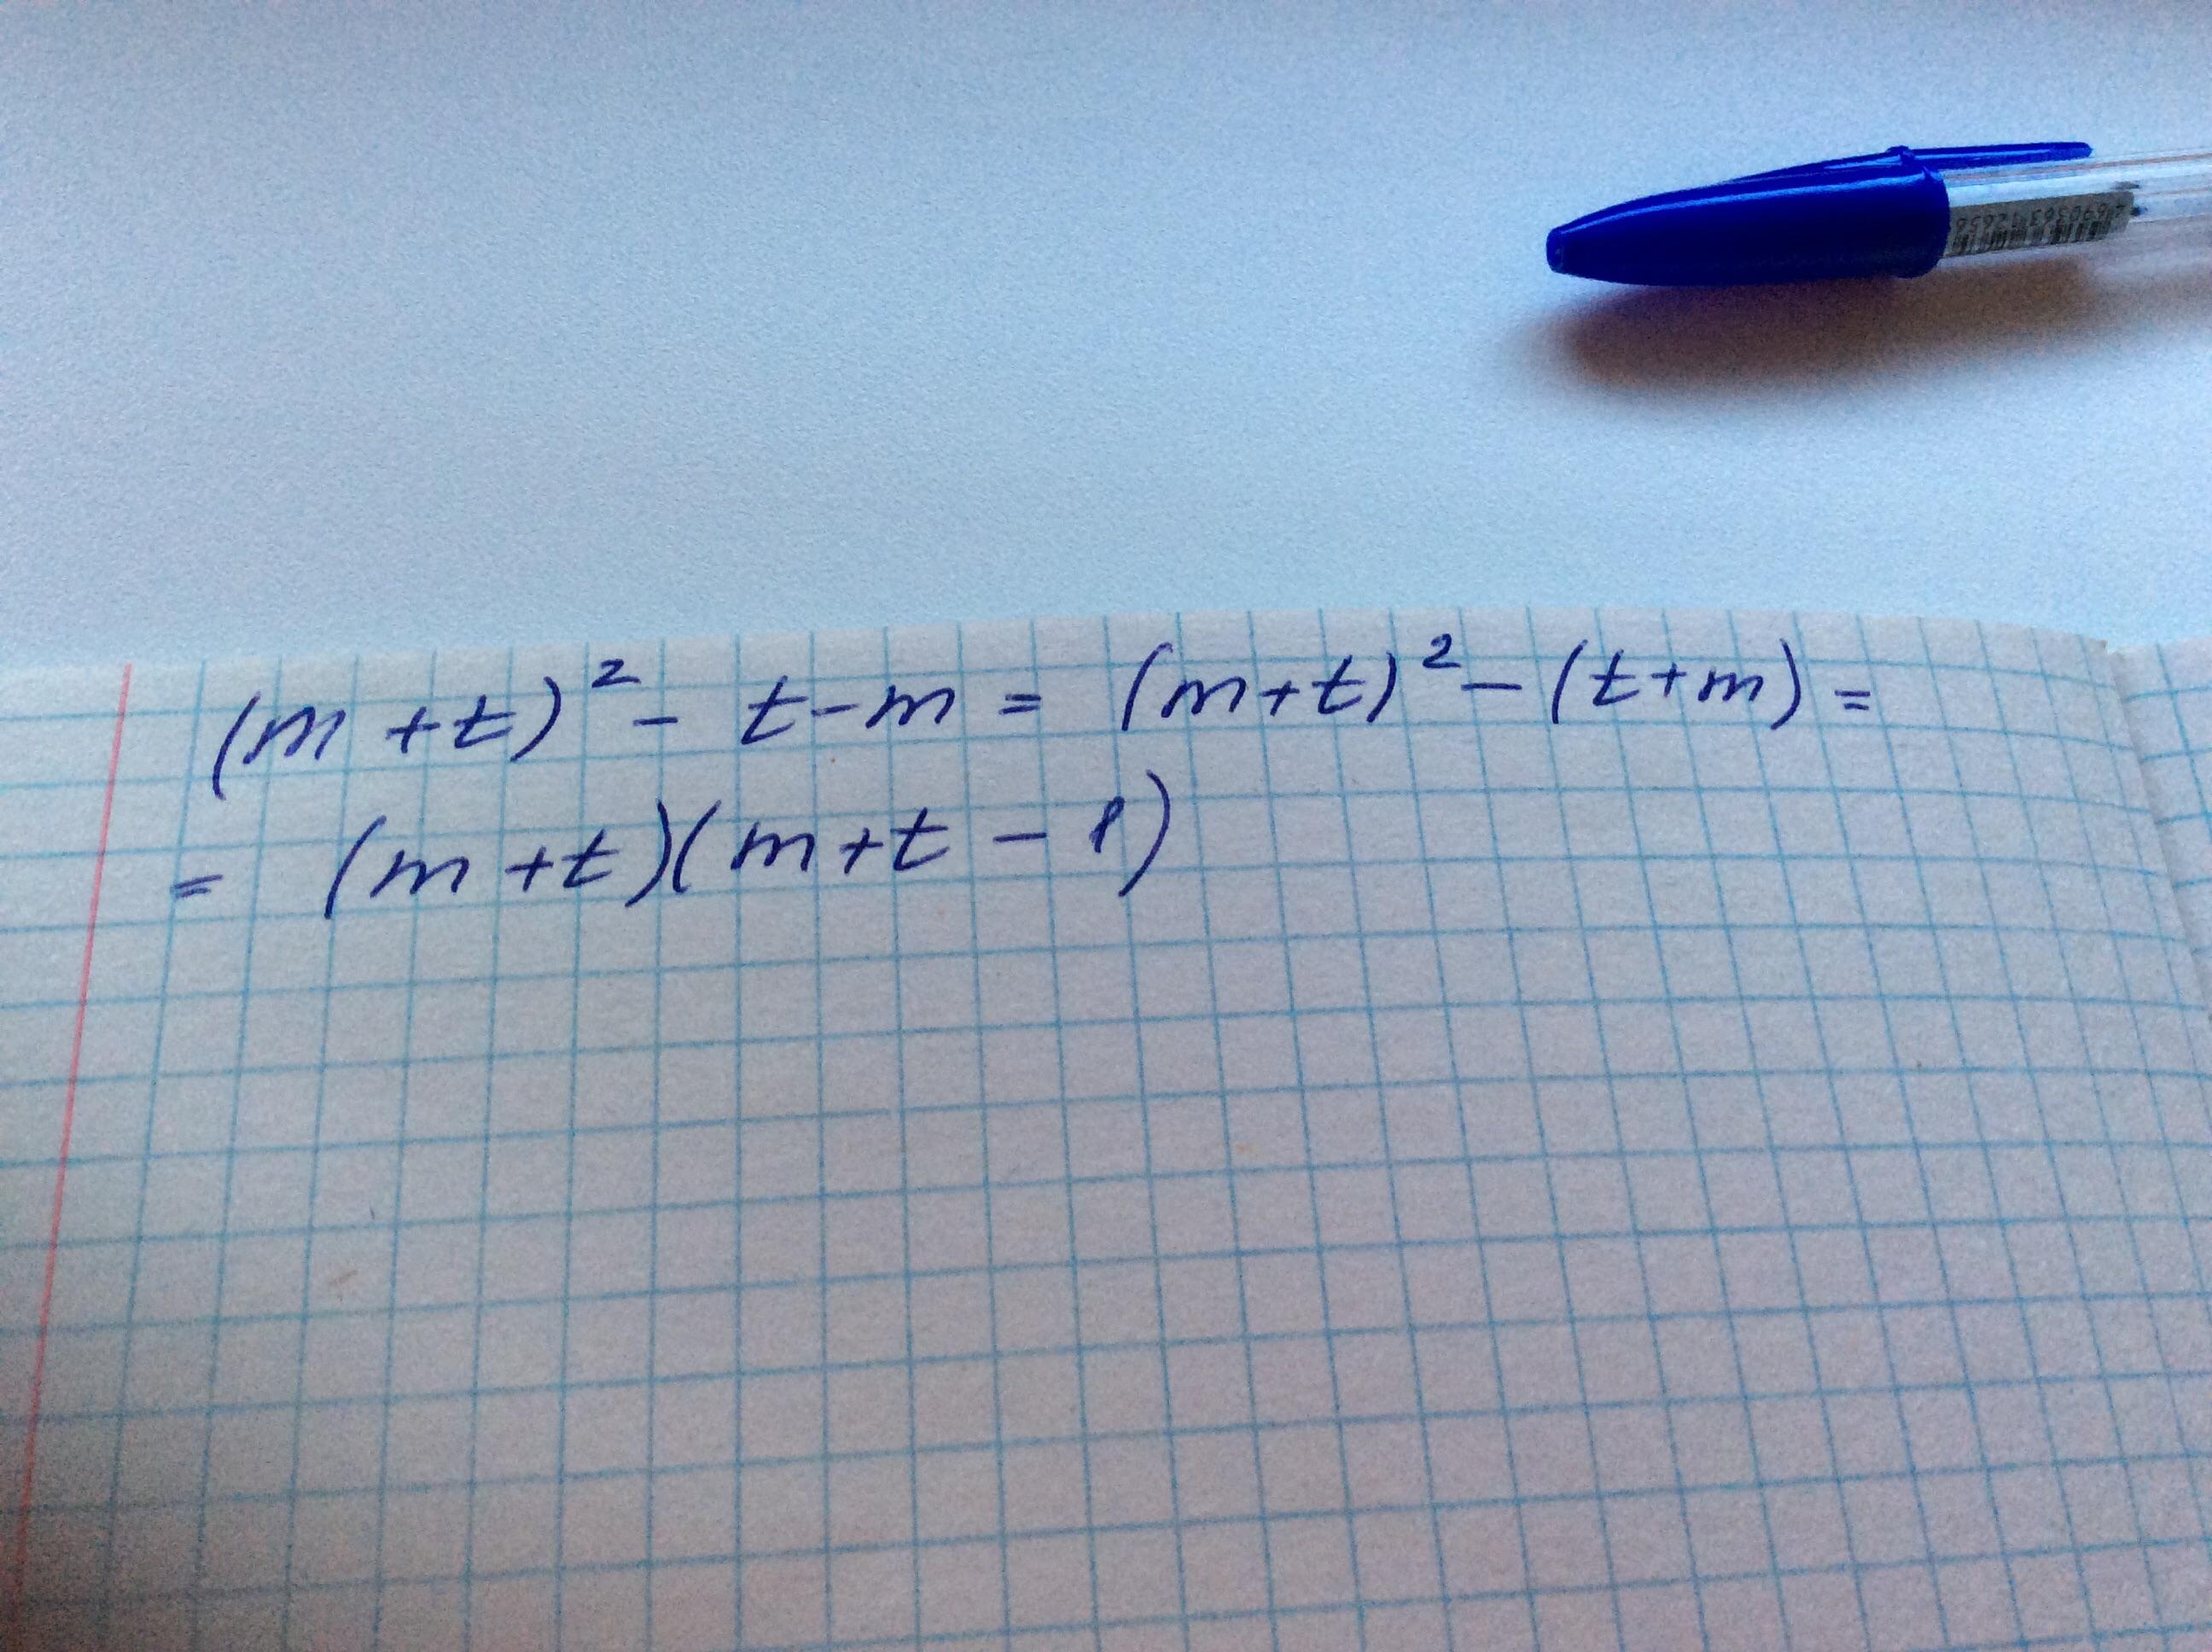 (m+t)² - t-m = (m+t)² - (t+m) =
= (m+t)(m+t-1)